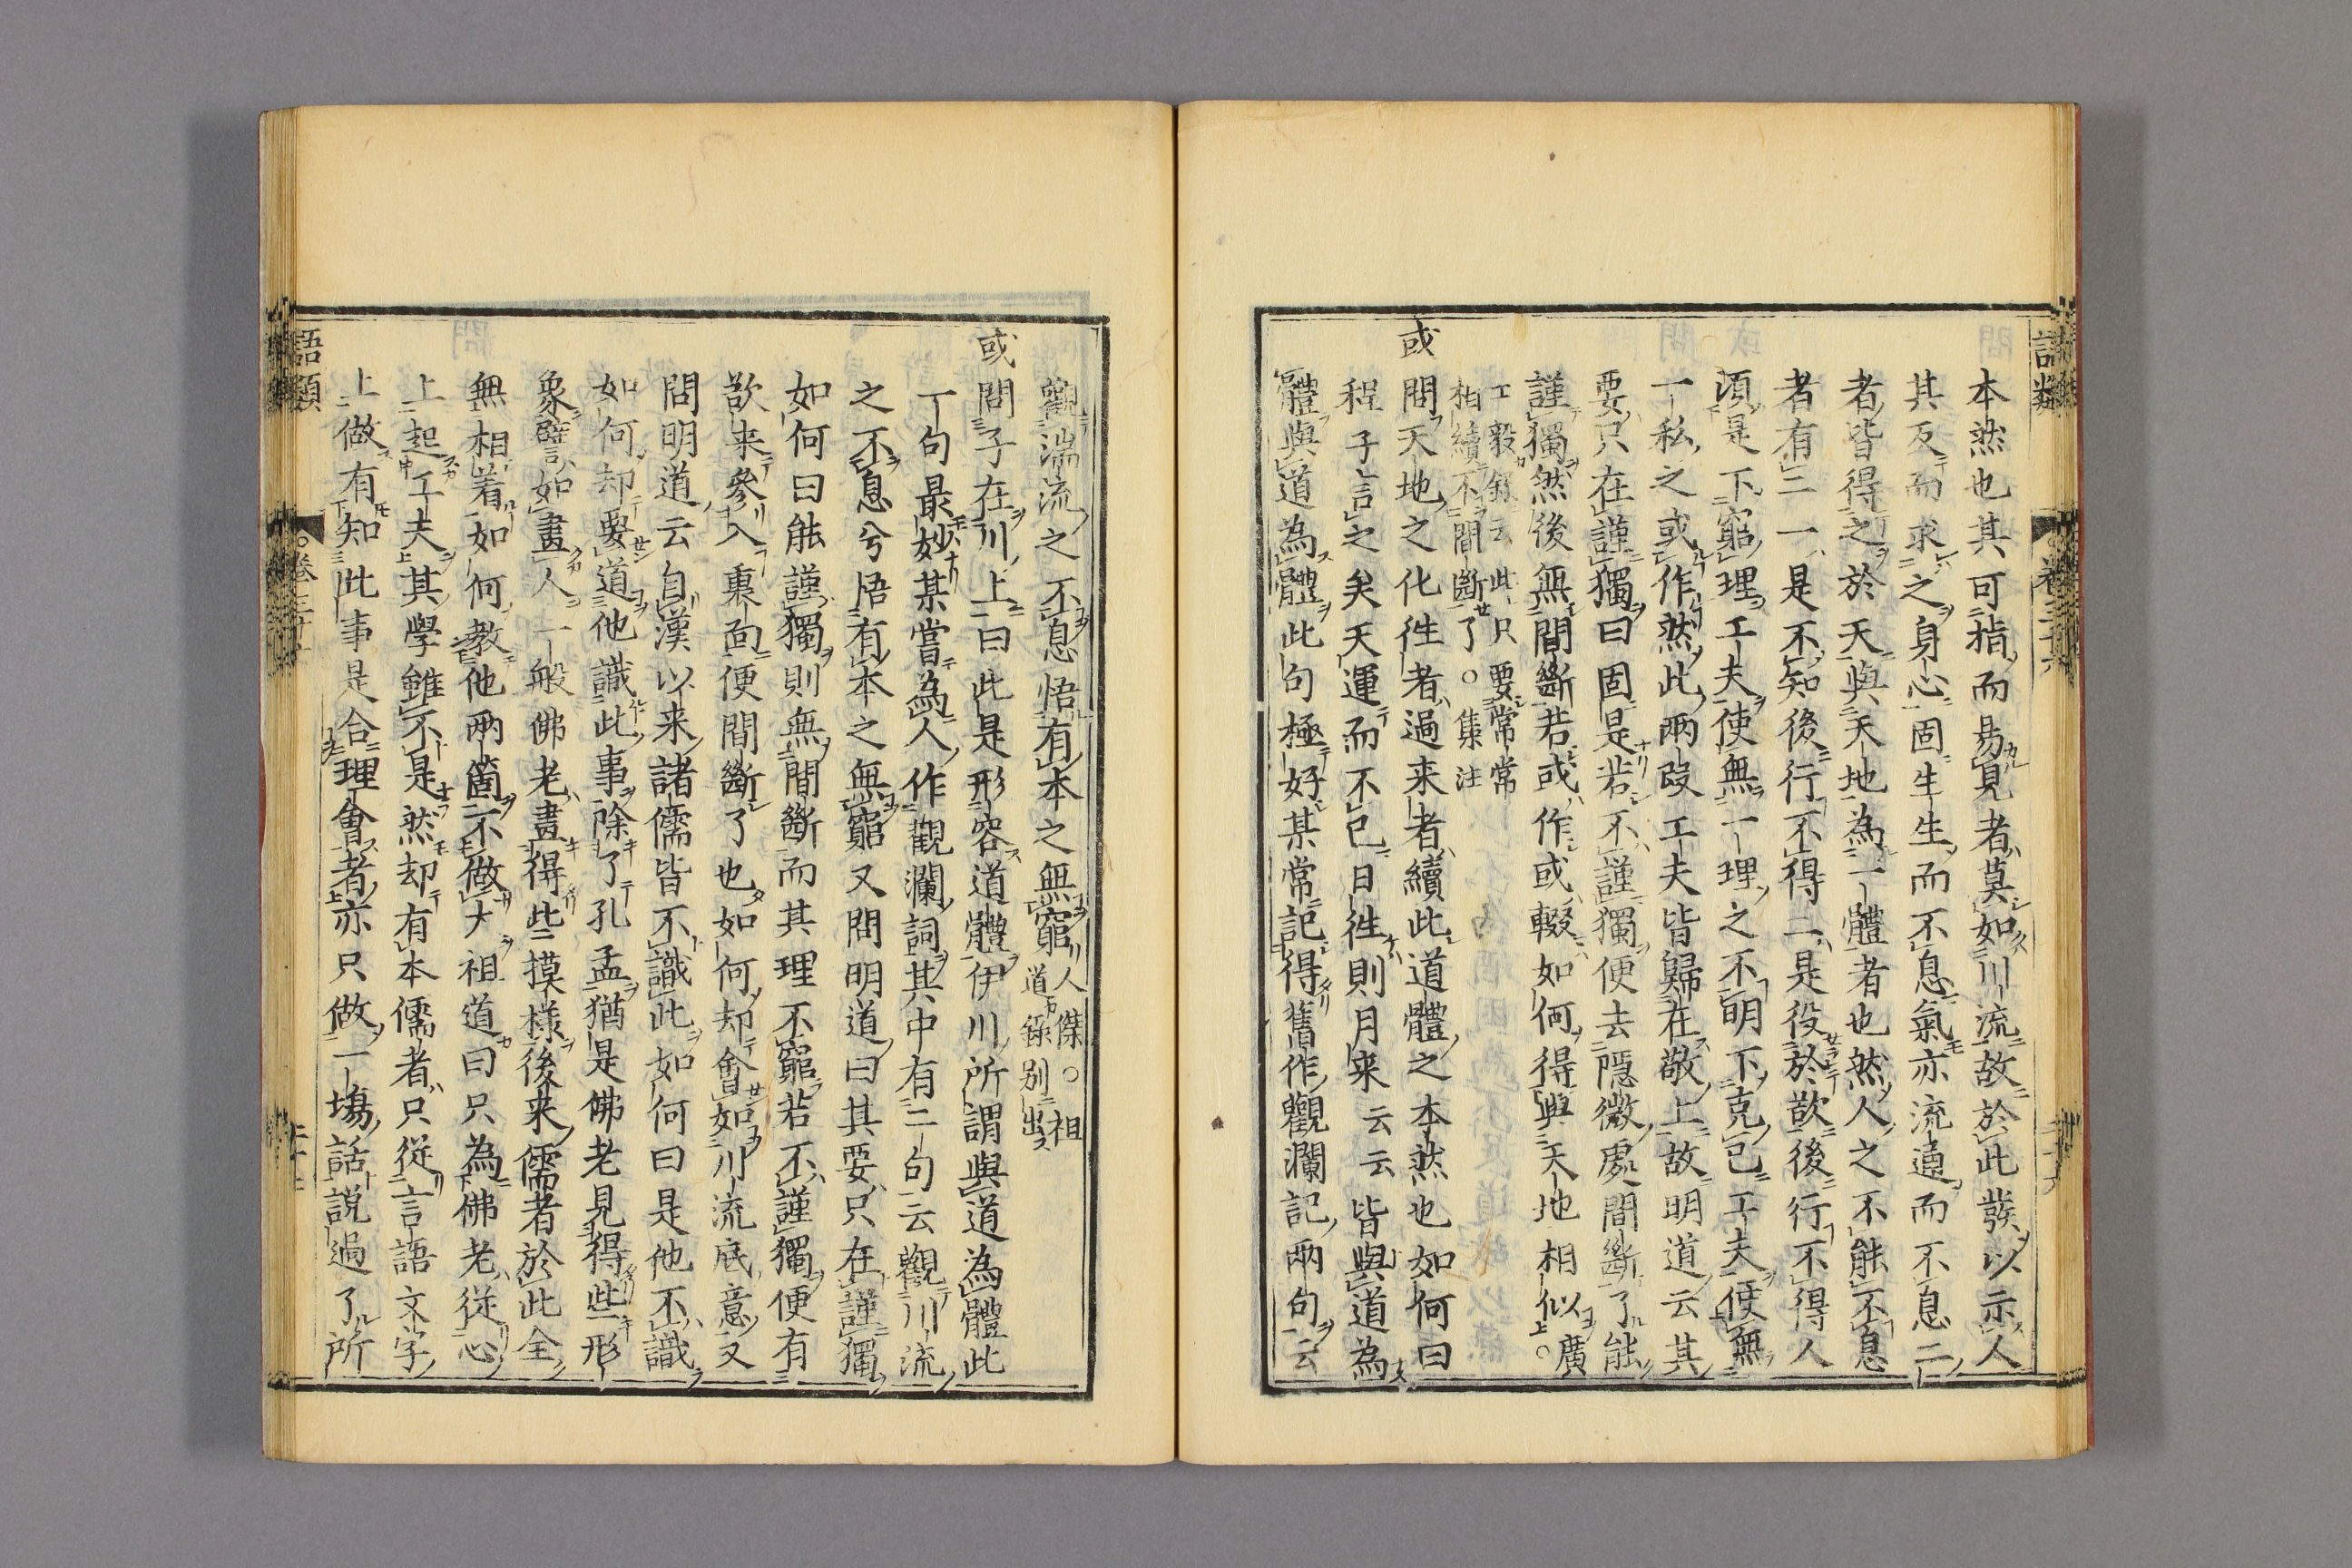 語類
卷三十六
本然也其可指而易見者莫如川流故於此發以示人
其反而求之身心固生生而不息氣亦流通而不息二
者皆得之於天與天地為一體者也然人之不能不息
者有二一是不知後行不得二是役於欲後行不得人
須是下窮理工夫使無一理之不明下克己工夫使無
一私之或作然此兩段工夫皆歸在敬上故明道云其
要只在謹獨曰固是若不謹獨便去隱微處間斷了能
謹獨然後無間斷若或作或輟如何得與天地相似。廣
士毅錄云此只要常常
相續不間斷了。集注
或問天地之化往者過来者續此道體之本然也如何曰
程子言之矣天運而不已日往則月来云云皆與道為
體與道為體此句極好某常記得舊作觀瀾記兩句云
觀湍流之不息悟有本之無窮人傑。祖
道錄別出
或問子在川上曰此是形容道體伊川所謂與道為體此
一句最妙某嘗為人作觀瀾詞其中有二句云觀川流
之不息兮悟有本之無窮又問明道曰其要只在謹獨
如何曰能謹獨則無間斷而其理不窮若不謹獨便有
欲来參入裏面便間斷了也如何却會如川流底意又
問明道云自漢以来諸儒皆不識此如何曰是他不識
如何却要道他識此事除了孔孟猶是佛老見得些形
象譬如畫人一般佛老畫得些摸樣後来儒者於此全
無相着如何教他兩箇不做大祖道曰只為佛老從心
上起工夫其學雖不是然却有本儒者只從言語文字
上做有知此事是合理會者亦只做一塲話說過了所
語類
卷三十六